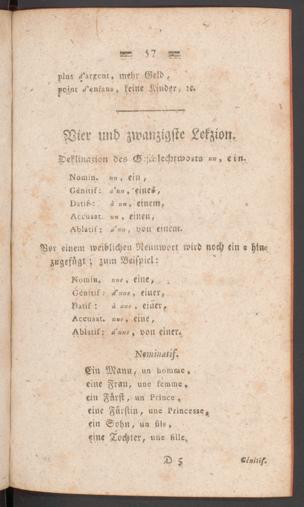 57
plus d'argent, mehr Geld,
point d'enfans, keine Kinder, ꝛc.
Vier und zwanzigste Lekzion.
Deklinazion des Geschlechtworts un, ein.
Nomin. un, ein,
Génitif: d'un, eines,
Datif: à un, einem,
Accusat. un, einen,
Ablatif: d'un, von einem.
Vor einem weiblichen Nennwort wird noch ein e hin-
zugefügt; zum Beispiel:
Nomin. une, eine,
Génitif: d'une, einer,
Datif: à une, einer,
Accusat. une, eine,
Ablatif: d'une, von einer.
Nominatif.
Ein Mann, un homme,
eine Frau, une femme,
ein Fürst, un Prince,
eine Fürstin, une Princesse,
ein Sohn, un fils,
eine Tochter, une fille,
D 5 Génitif.